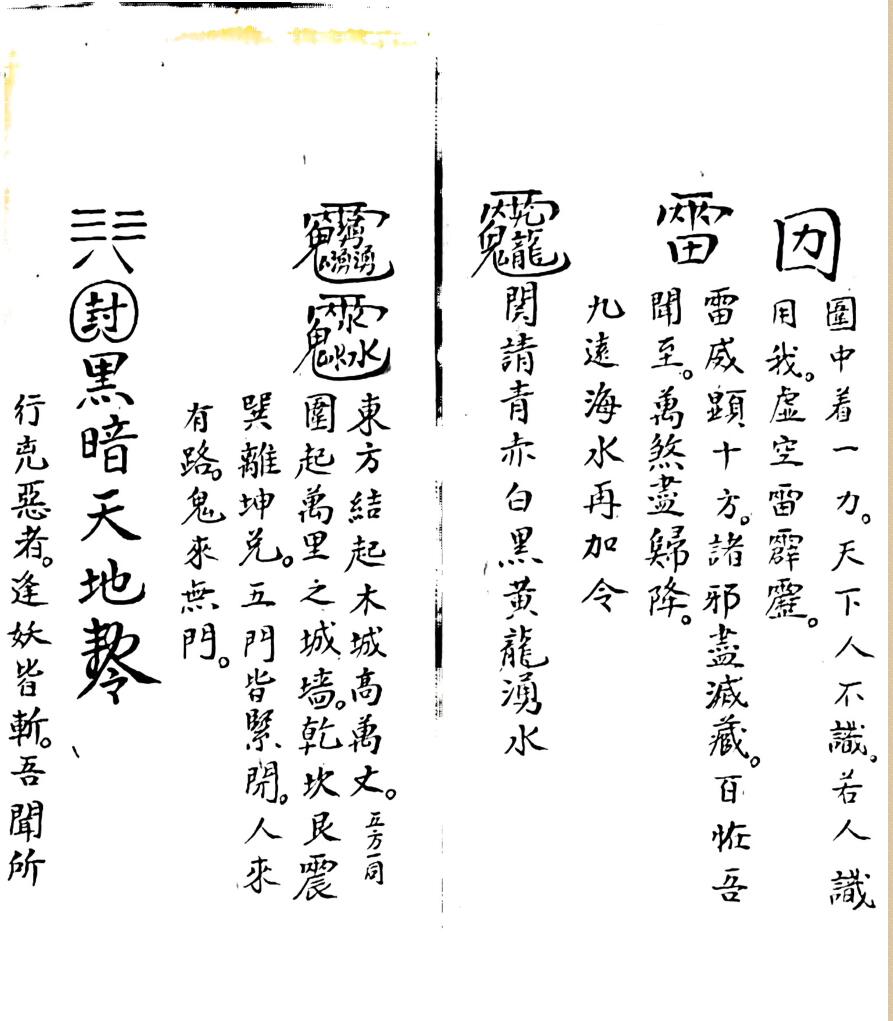 圖中着一力。天下人不識。若人識
用我。虛空雷霹靂。
雷
雷威顕十方。諸邪盡滅藏。百恠吾
聞至。萬煞盡歸降。
九遠海水再加令
関請青赤白黑黄龍湧水
東方結起木城高萬丈。五方一同
圍起萬里之城墻。乾坎艮震
巽離坤兌。五門皆緊閉。人來
有路。鬼來無門。
封黑暗天地
行克惡者。逢妖皆斬。吾聞所